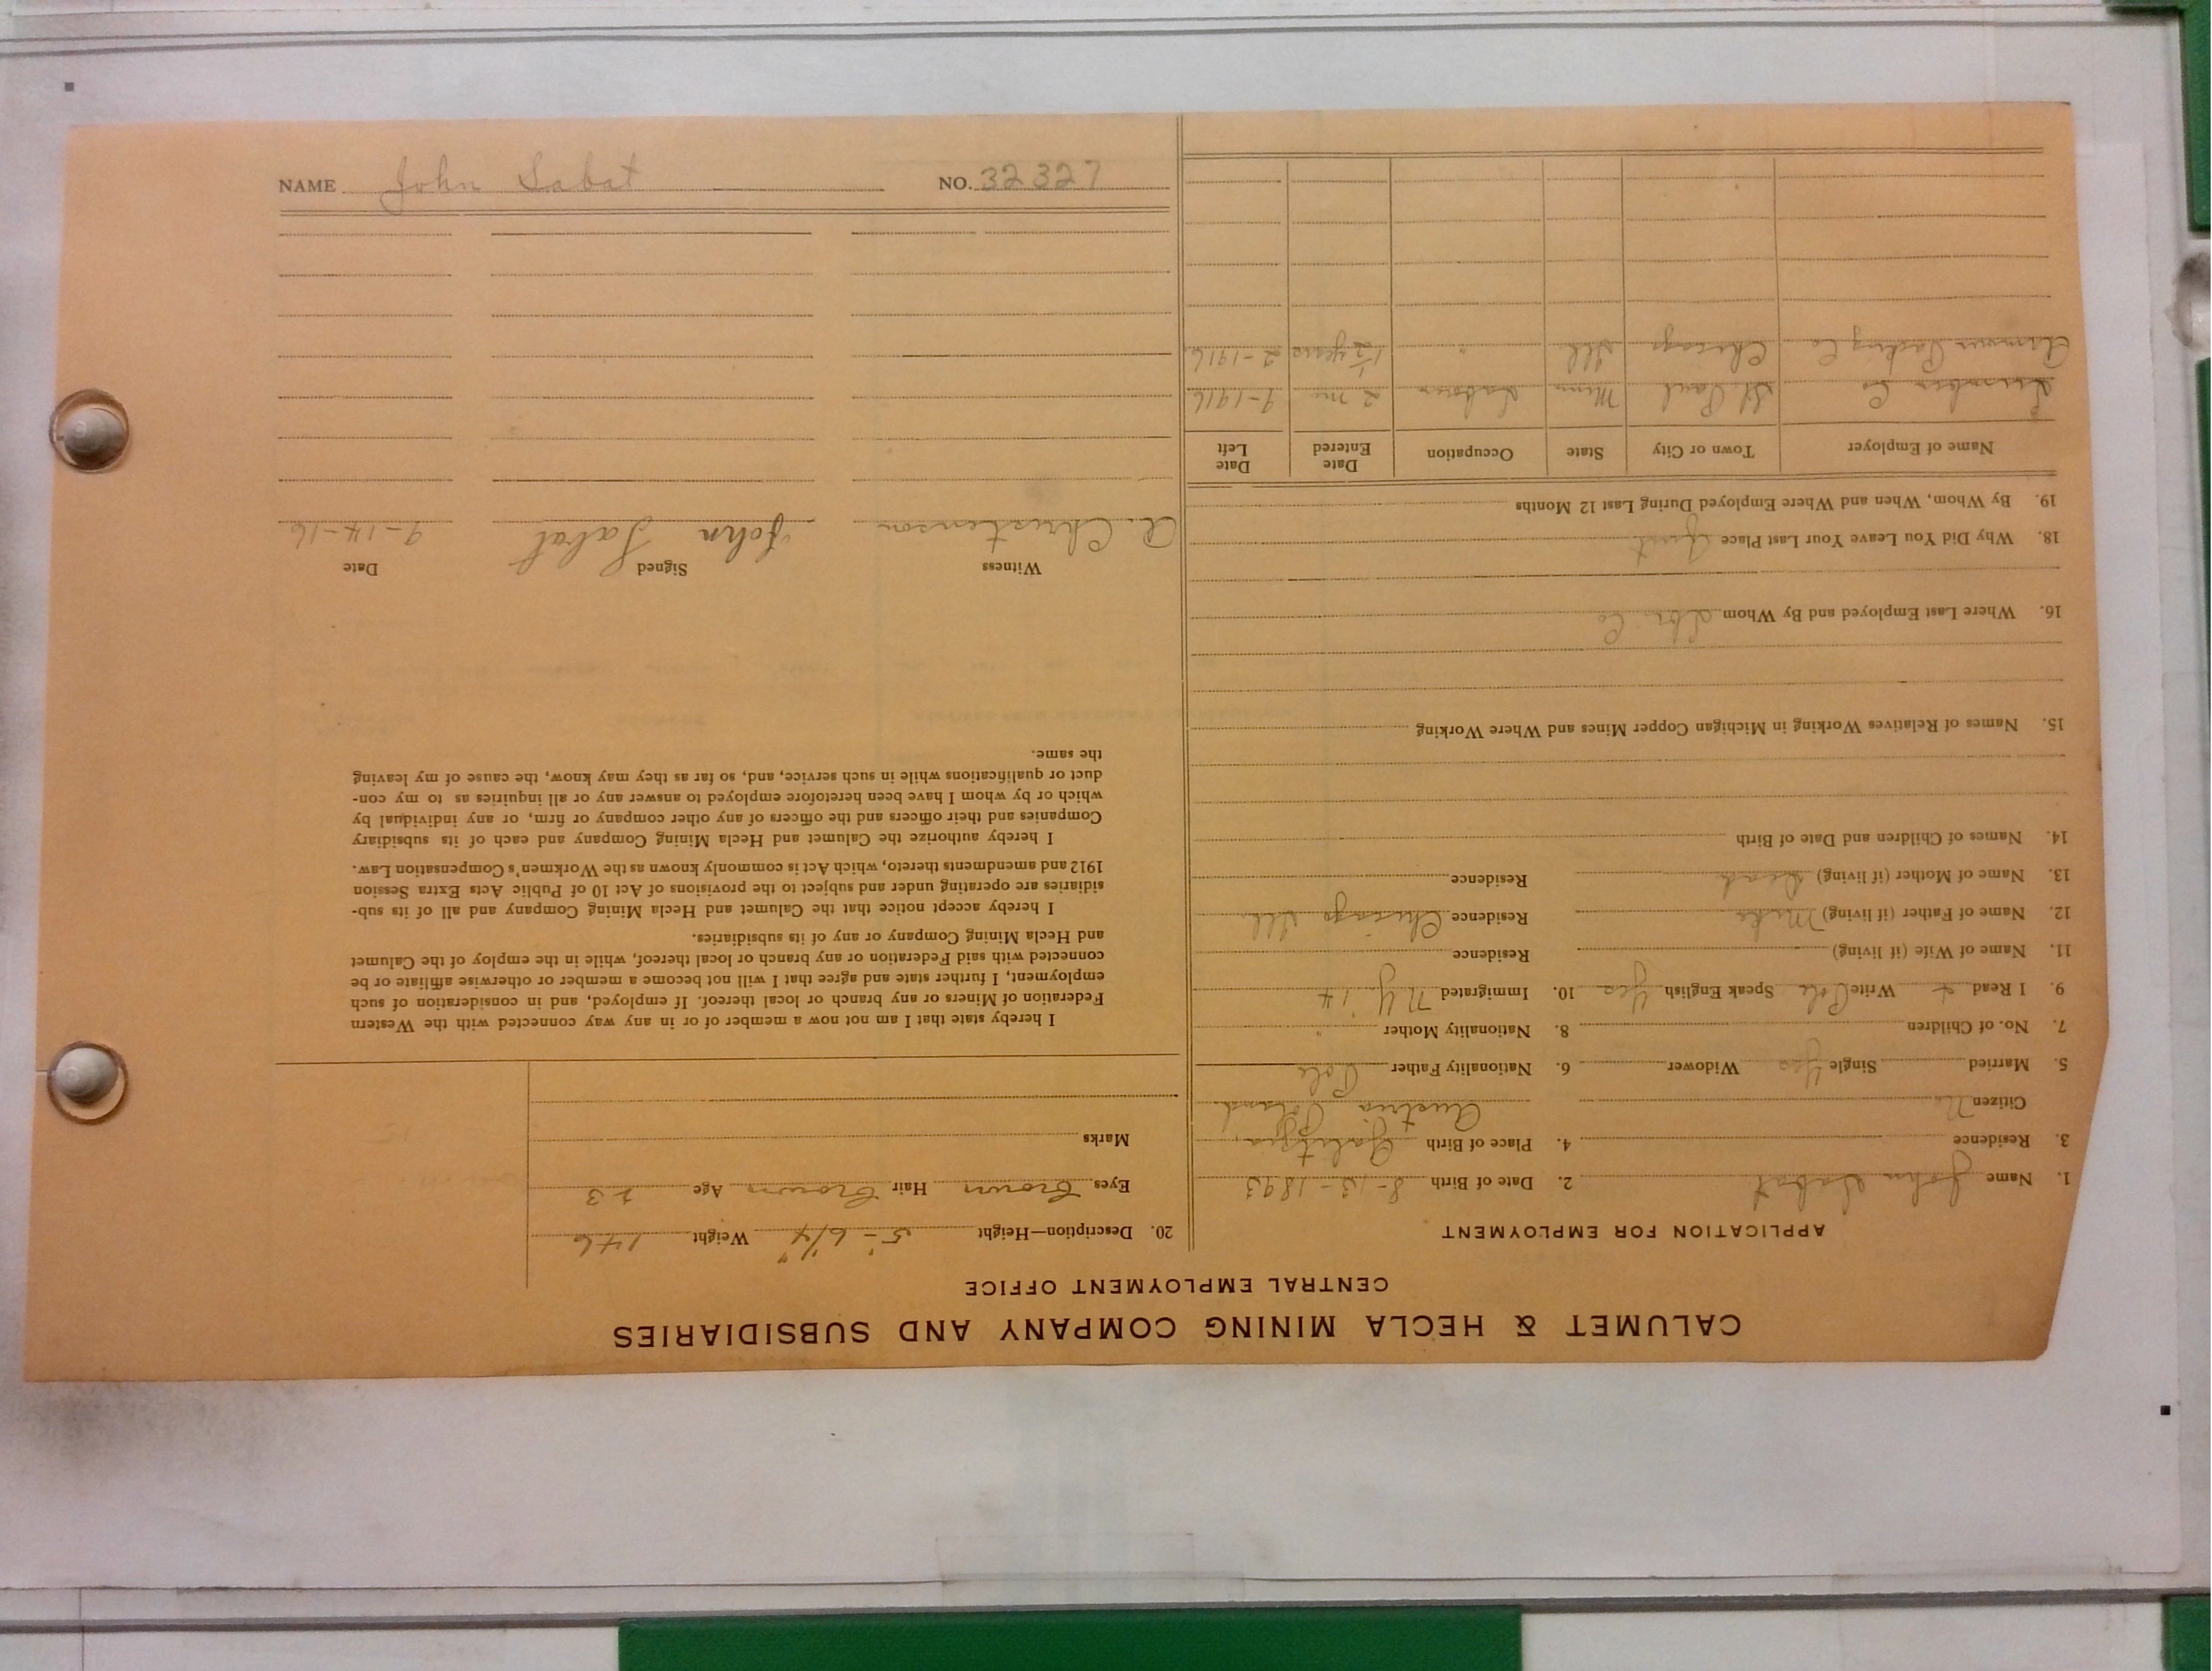 CALUMET & HECLA MINING COMPANY AND SUBSIDIARIES
CENTRAL EMPLOYMENT OFFICE
APPLICATION FOR EMPLOYMENT
1. Name John Sabat 2. Date of Birth 8-15-1893
3. Residence 4. Place of Birth
Citizen No Austria Poland
5. Married Single Yes Widower 6. Nationality Father Pole
7. No. of Children 8. Nationality Mother "
9. I Read + Write Pole Speak English Yes 10. Immigrated N.Y. 14
11. Name of Wife (if living) Residence
12. Name of Father (if living) Mike Residence Chicago Ill.
13. Name of Mother (if living) Dead Residence
14. Names of Children and Date of Birth
15. Names of Relatives Working in Michigan Copper Mines and Where Working
16. Where Last Employed and By Whom Lbr. Co
18. Why Did You Leave Your Last Place Quit
19. By Whom, When and Where Employed During Last 12 Months
Name of Employer Town or City State Occupation Date Entered Date Left
Lumber Co St. Paul Minn Laborer 2 mo 9-1916
Armour Packing Co Chicago Ill. " 1½ years 2-1916
20. Description—Height 5'-6¼" Weight 146
Eyes Brown Hair Brown Age 23
Marks
I hereby state that I am not now a member of or in any way connected with the Western
Federation of Miners or any branch or local thereof. If employed, and in consideration of such
employment, I further state and agree that I will not become a member or otherwise affiliate or be
connected with said Federation or any branch or local thereof, while in the employ of the Calumet
and Hecla Mining Company or any of its subsidiaries.
I hereby accept notice that the Calumet and Hecla Mining Company and all of its sub-
sidiaries are operating under and subject to the provisions of Act 10 of Public Acts Extra Session
1912 and amendments thereto, which Act is commonly known as the Workmen's Compensation Law.
I hereby authorize the Calumet and Hecla Mining Company and each of its subsidiary
Companies and their officers and the officers of any other company or firm, or any individual by
which or by whom I have been heretofore employed to answer any or all inquiries as to my con-
duct or qualifications while in such service, and, so far as they may know, the cause of my leaving
the same.
Witness Signed Date
A. Christenson John Sabat 9-14-16
NAME John Sabat NO. 32327